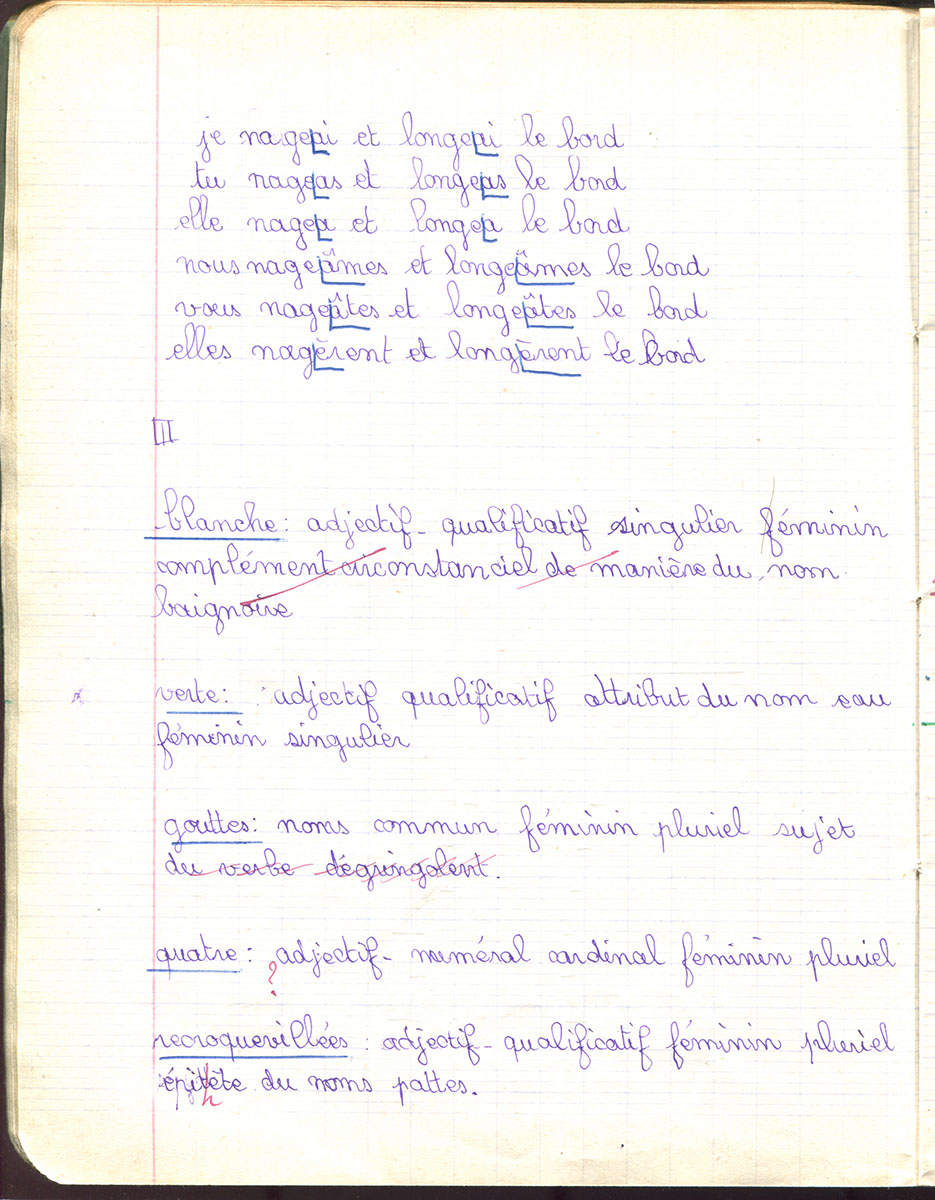 je nageai et longeai le bord
tu nageas et longeas le bord
elle nagea et longea le bord
nous nageâmes et longeâmes le bord
vous nageâtes et longeâtes le bord
elles nagèrent et longèrent le bord
II
blanche : adjectif - qualificatif singulier féminin
complément circonstanciel de manière du nom
baignoire
verte : adjectif qualificatif attribut du nom eau
féminin singulier
gouttes : noms commun féminin pluriel sujet
du verbe dégringolent.
quatre : adjectif - numéral cardinal féminin pluriel
?
recroquevillées : adjectif - qualificatif féminin pluriel
épithète du noms pattes.